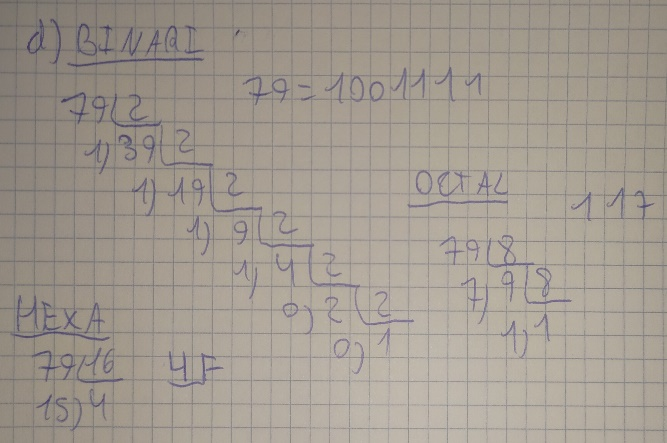 d) BINARI
79 = 1001111
79 2
1) 39 2
1) 19 2
1) 9 2
1) 4 2
0) 2 2
0) 1
OCTAL 117
79 8
7) 9 8
1) 1
HEXA
79 16 4F
15) 4